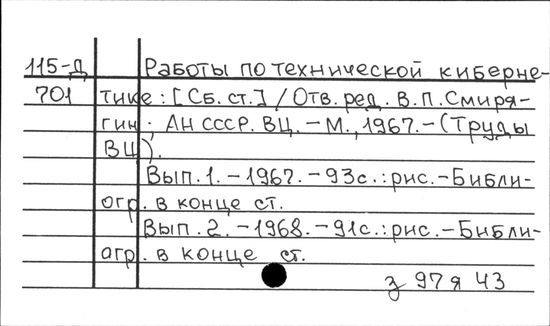 115-Д Работы по технической киберне-
701 тике: [Сб. ст.] / Отв. ред. В.П. Смиря-
гин; АН СССР. ВЦ. – М., 1967. – (Труды
ВЦ).
Вып. 1. – 1967. – 93с.: рис. – Библи-
огр. в конце ст.
Вып. 2. – 1968. – 91с.: рис. – Библи-
огр. в конце ст.
з 97 я 43